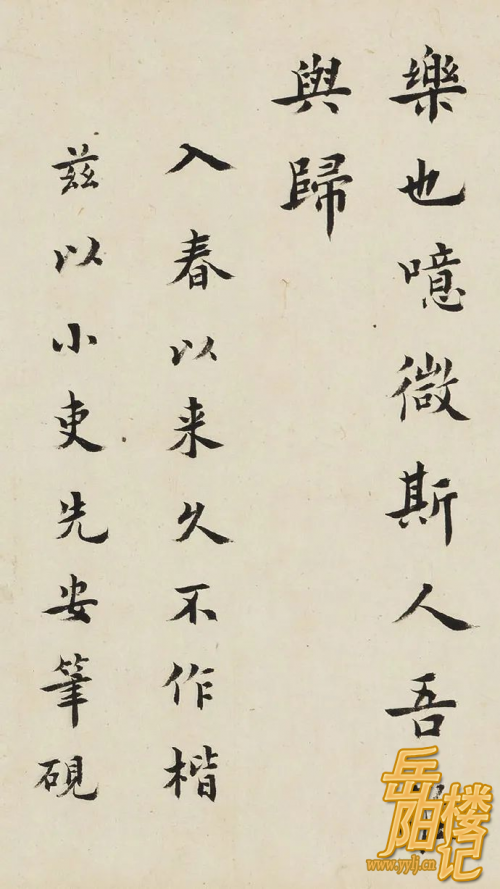 樂也噫微斯人吾
與歸
入春以来久不作楷
茲以小吏先安筆硯
岳阳楼记
www.yylj.cn